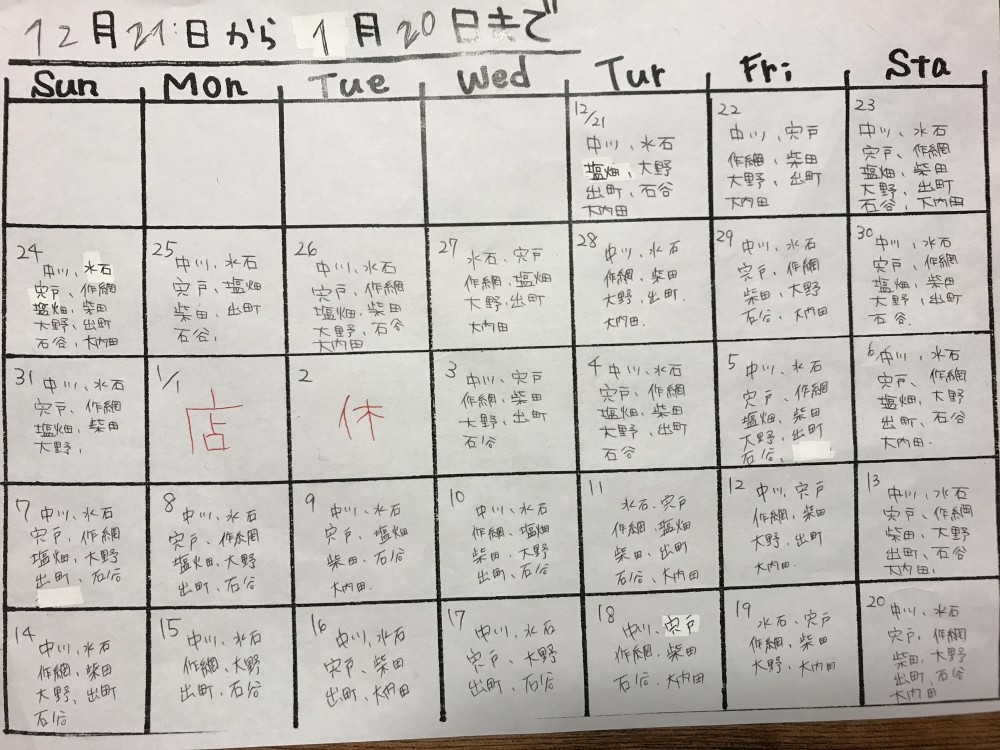 12月21日から 1月20日まで
Sun Mon Tue Wed Tur Fri Sta
12/21
中川、水石
塩畑、大野
出町、石谷
大内田
22
中川、宍戸
作網、柴田
大野、出町
大内田
23
中川、水石
宍戸、作網
塩畑、柴田
大野、出町
石谷、大内田
24
中川、水石
宍戸、作網
塩畑、柴田
大野、出町
石谷、大内田
25
中川、水石
宍戸、塩畑
柴田、出町
石谷、
26
中川、水石
宍戸、作網
塩畑、柴田
大野、石谷
大内田
27
水石、宍戸
作網、塩畑
大野、出町
大内田
28
中川、水石
作網、柴田
大野、出町.
大内田.
29
中川、水石
宍戸、作網
柴田、大野
石谷、大内田
30
中川、水石
宍戸、作網
塩畑、柴田
大野、出町
石谷.
31
中川、水石
宍戸、作網
塩畑、柴田
大野、
1/1
店
2
休
3
中川、宍戸
作網、柴田
大野、出町
石谷
4
中川、水石
宍戸、作網
塩畑、柴田
大野、出町
石谷
5
中川、水石
宍戸、作網
塩畑、柴田
大野、出町
石谷、
6
中川、水石
宍戸、作網
塩畑、大野
出町、石谷
大内田.
7
中川、水石
宍戸、作網
塩畑、大野
出町、石谷
8
中川、水石
宍戸、作網
塩畑、大野
出町、石谷
9
中川、水石
宍戸、塩畑
柴田、石谷
大内田.
10
中川、水石
作網、塩畑
柴田、大野
出町、石谷
11
水石、宍戸
作網、塩畑
柴田、出町
石谷、大内田
12
中川、宍戸
作網、柴田
大野、出町
大内田.
13
中川、水石
宍戸、作網
柴田、大野
出町、石谷
大内田、
14
中川、水石
作網、柴田
大野、出町
石谷
15
中川、水石
作網、大野
出町、石谷
16
中川、水石
宍戸、柴田
出町、大内田
17
中川、水石
宍戸、大野
出町、石谷
18
中川、宍戸
作網、柴田
石谷、大内田
19
水石、宍戸
作網、柴田
大野、大内田
20
中川、水石
宍戸、作網
柴田、大野
出町、石谷
大内田